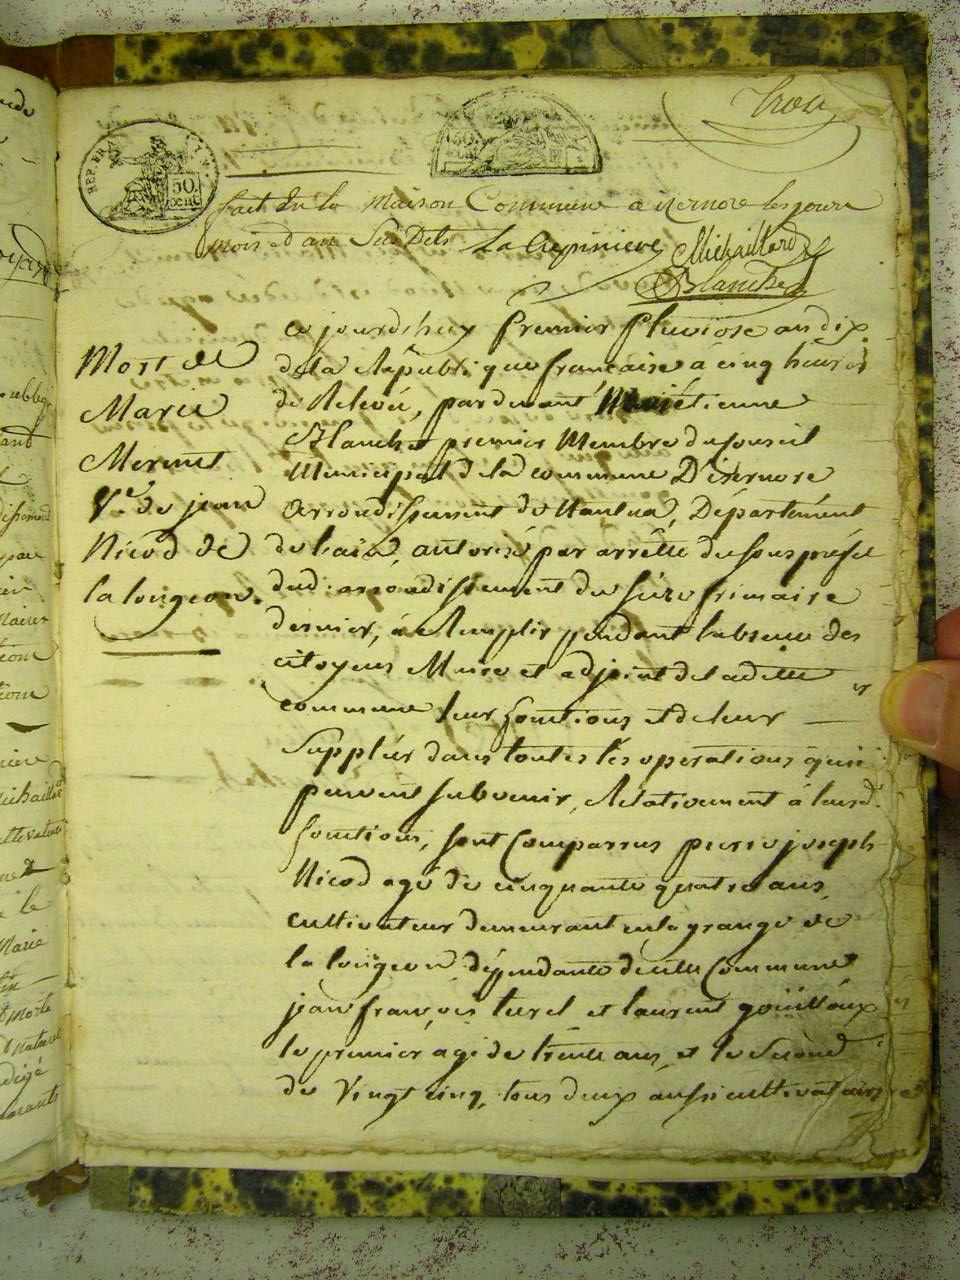 trois
REP. FRA
50 CENT
fait en la Maison Commune a izernore les jour
mois et an Sus Dets La Crepiniere Michaillard
Blanchet
Mort de
Marie
Mermet
Ve. de jean
Nicod de
la longeon.
ce jourdhuy premier pluviose an dix
de la République francaise a cinq heures
de Relevé, par devant étienne
Blanchet premier Membre du Conseil
Municipal de la commune Dizernore
Arrondissement de Nantua, Département
de l'ain, autorisé par arrêtté du sous préfet
dud: arrondissement du seize frimaire
dernier, à Remplir pendant labsence des
citoyens Maire et adjoint de laditte
commune leur fonctions et de leur
Suppléer dans toutes les operations qui
peuvent subvenir, Relativement à leursd.
fonctions, sont Comparrus pierre joseph
Nicod agé de cinquante quatre ans
cultivateur demeurant en la grange de
la longeon dépendante de cette Commune
jean françois turel et laurent gouilloux
le premier agé de trente ans, et le Second
de Vingt cinq, tous deux aussi cultivateurs